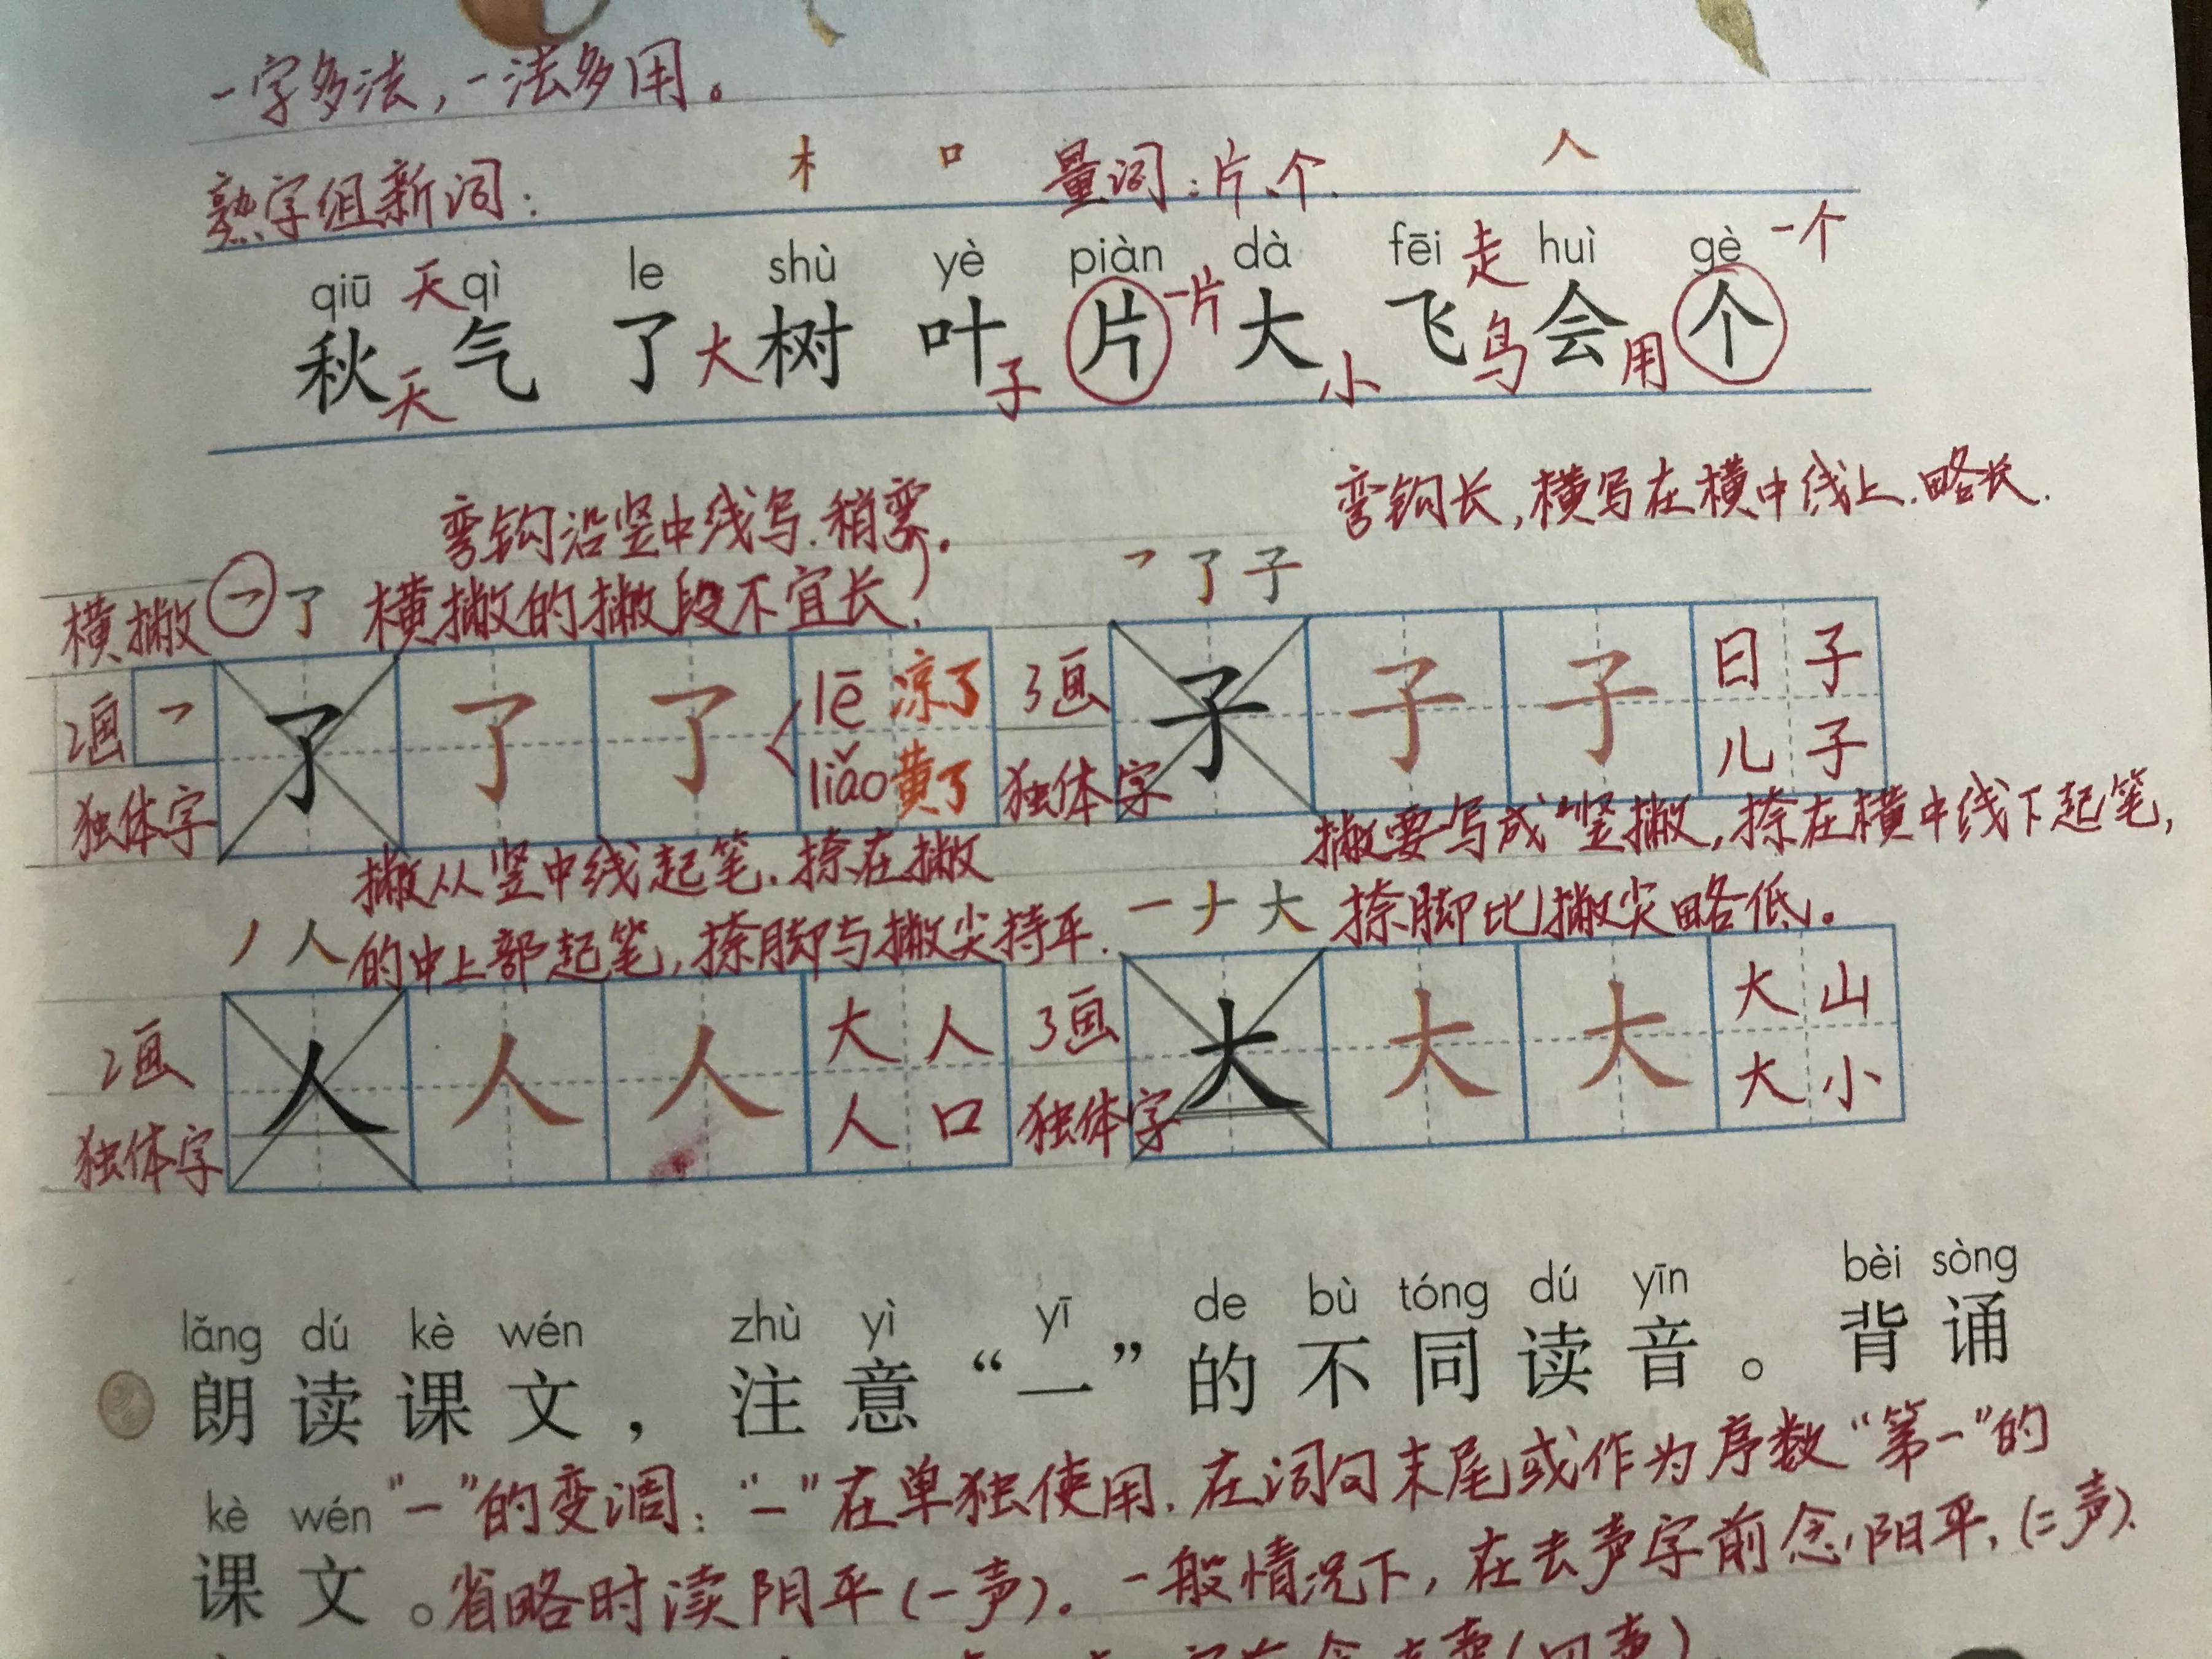 一字多法，一法多用。
木 口 人
熟字组新词： 量词：片、个.
qiū 天 qì le shù yè piàn dà fēi 走 huì gè 一个
秋 天 气 了 大 树 叶 子 片 一片 大 小 飞 鸟 会 用 个
弯钩沿竖中线写.稍弯. 弯钩长，横写在横中线上.略长.
横撇 ㇇ 了 横撇的撇段不宜长. ㇇ 了 子
2画 ㇇ 了 了 了 lē 凉了 3画 子 子 子 日子
独体字 liǎo 黄了 独体字 儿子
撇从竖中线起笔.捺在撇 撇要写成“竖撇，捺在横中线下起笔，
丿 人 的中上部起笔，捺脚与撇尖持平. 一 ナ 大 捺脚比撇尖略低。
2画 人 人 人 大人 3画 大 大 大 大山
独体字 人口 独体字 大小
lǎng dú kè wén zhù yì yī de bù tóng dú yīn bèi sòng
朗读课文，注意“一”的不同读音。背诵
kè wén “一”的变调：“一”在单独使用.在词句末尾或作为序数“第一”的
课文。省略时读阴平(一声)。一般情况下，在去声字前念阳平，(二声).
(四声)